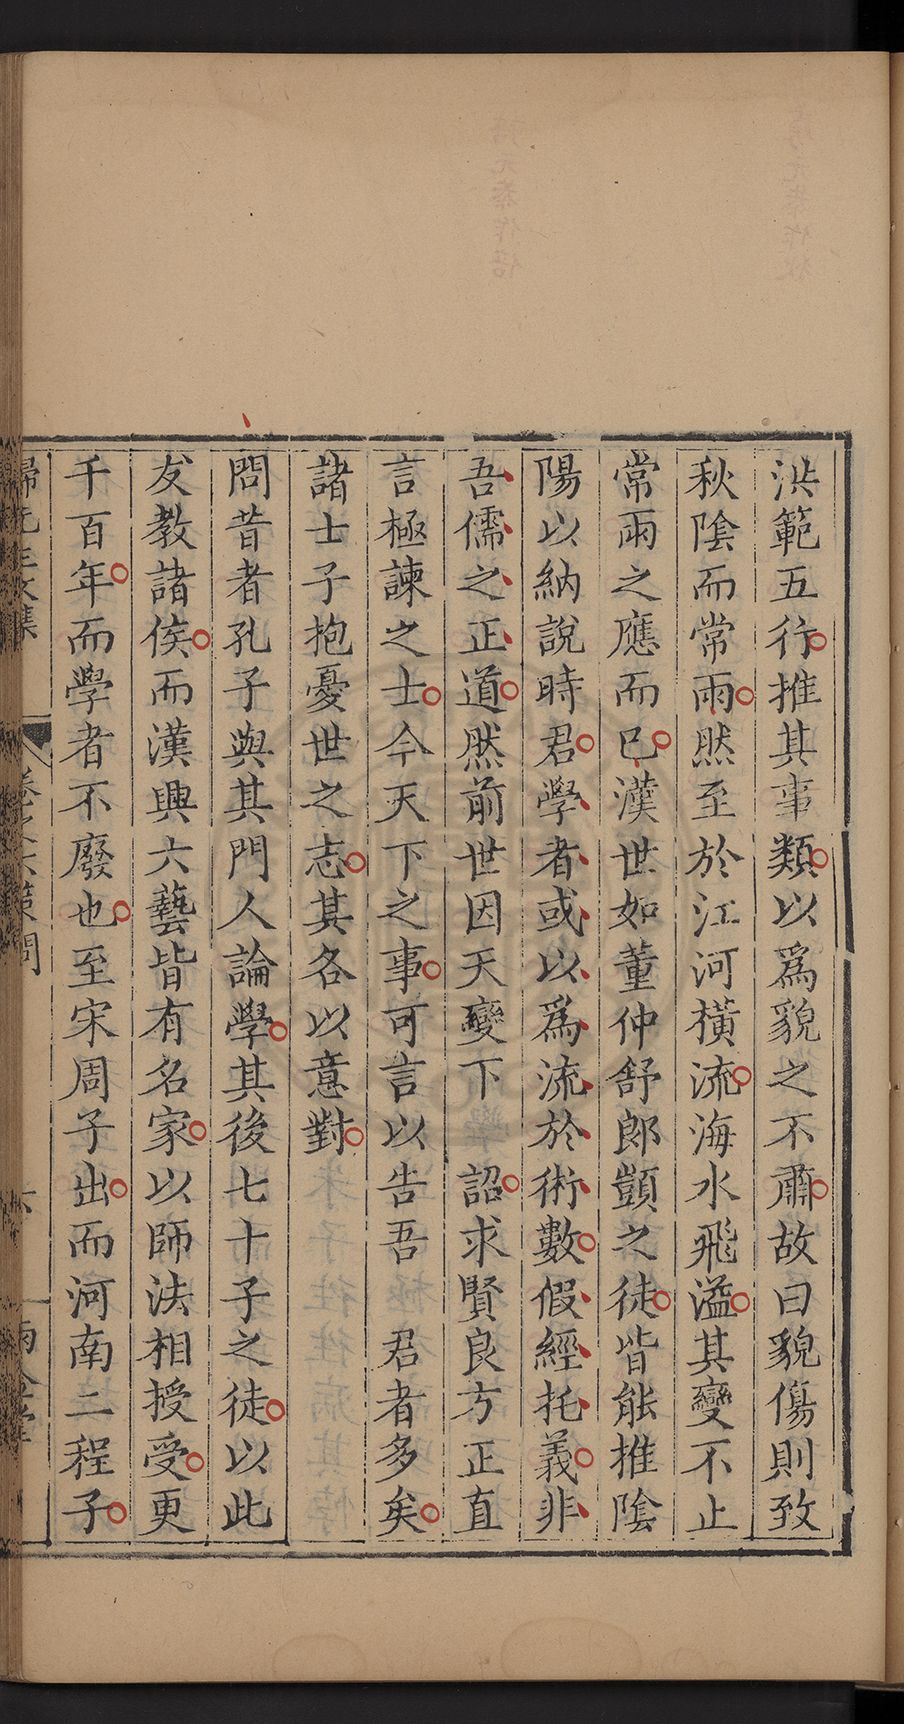 洪範五行推其事類以爲貌之不肅故曰貌傷則致
秋陰而常雨然至於江河橫流海水飛溢其變不止
常雨之應而已漢世如董仲舒郎顗之徒皆能推陰
陽以納說時君學者或以爲流於術數假經托義非
吾儒之正道然前世因天變下　詔求賢良方正直
言極諫之士今天下之事可言以告吾　君者多矣
諸士子抱憂世之志其各以意對
問昔者孔子與其門人論學其後七十子之徒以此
友教諸侯而漢興六藝皆有名家以師法相授受更
千百年而學者不廢也至宋周子出而河南二程子